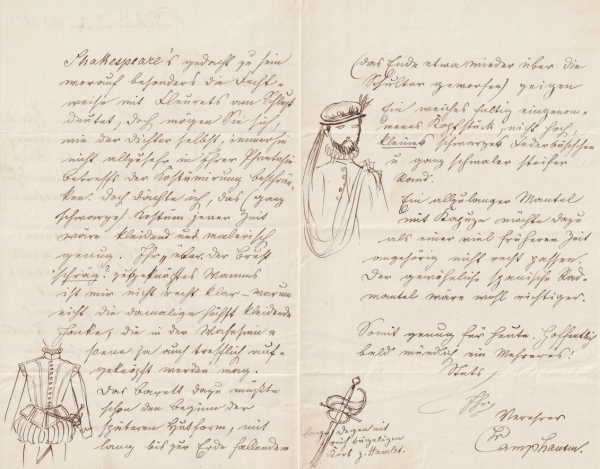 Shakespeare's gedacht zu sein
worauf besonders die Fecht-
weise mit Fleurets am Schluß
deutet, doch mögen Sie sich,
wie der Dichter selbst, immerhin
nicht allzusehr in Ihrer Phantasie
betreffs der Kostümirung beschrän-
ken. Doch dächte ich, das (ganz
schwarze) Kostüm jener Zeit
wäre kleidend und malerisch
genug. Ihr, über der Brust
schräg? zugeknöpftes Wamms
ist mir nicht recht klar – warum
nicht die damalige höchst kleidende
Jacke, die in der Wahnsinns
scene ja auch trefflich auf-
geknöpft werden mag.
Das Barett dazu müßte
schon den Beginn der
späteren Hutform, mit
lang bis zur Erde fallendem
(das Ende etwa wieder über die
Schulter geworfen) zeigen
Ein weiches faltig eingenom-
menes Kopfstück, nicht hoch,
kleines schwarzes Federbüschchen
u ganz schmaler steifer
Rand.
Ein allzulanger Mantel
mit Kapuze möchte dazu
als einer viel früheren Zeit
angehörig nicht recht passen.
Der gewöhnliche spanische Rad-
mantel wäre wohl richtiger.
Somit genug für heute. Hoffentlich
bald mündlich ein Mehreres!
Stets
Ihr
Verehrer
Camphausen
Degen mit
bügeligem
Korb z. Hamlet.